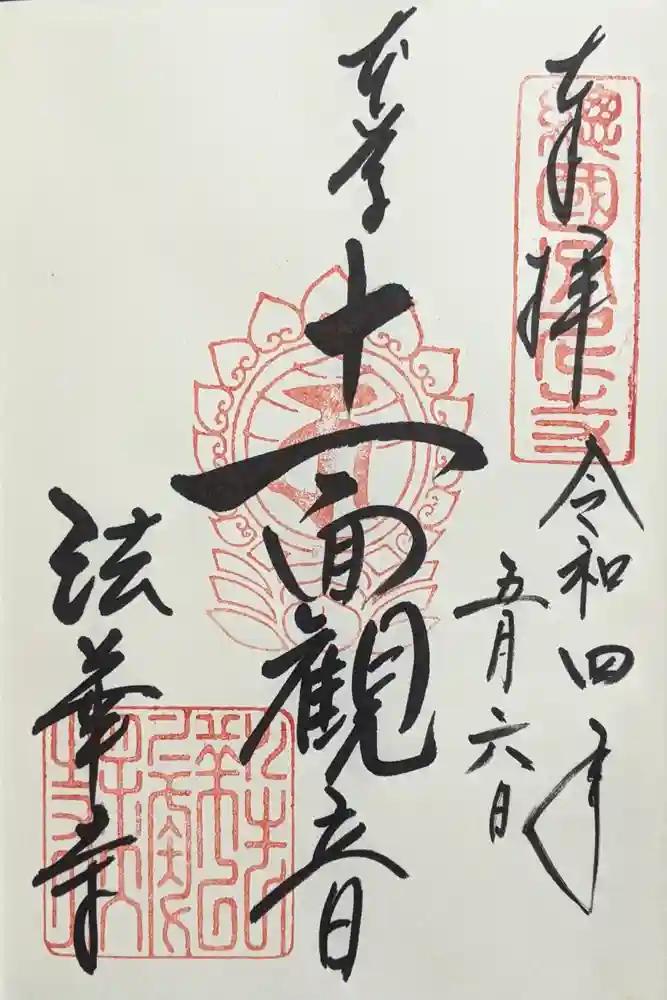 奉拝
總國分尼寺
令和四年
五月六日
本尊
十一面観音
法華寺